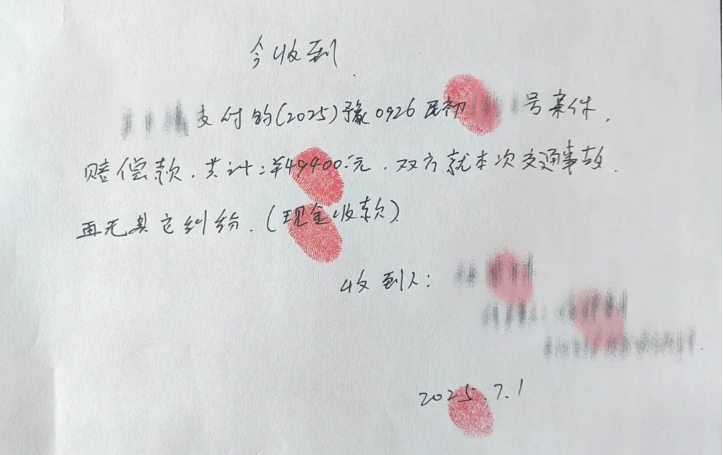 今收到
支付的(2025)豫0926民初 号案件,
赔偿款,共计:¥49400元,双方就本次交通事故
再无其它纠纷.(现金收款)
收到人:
2025.7.1